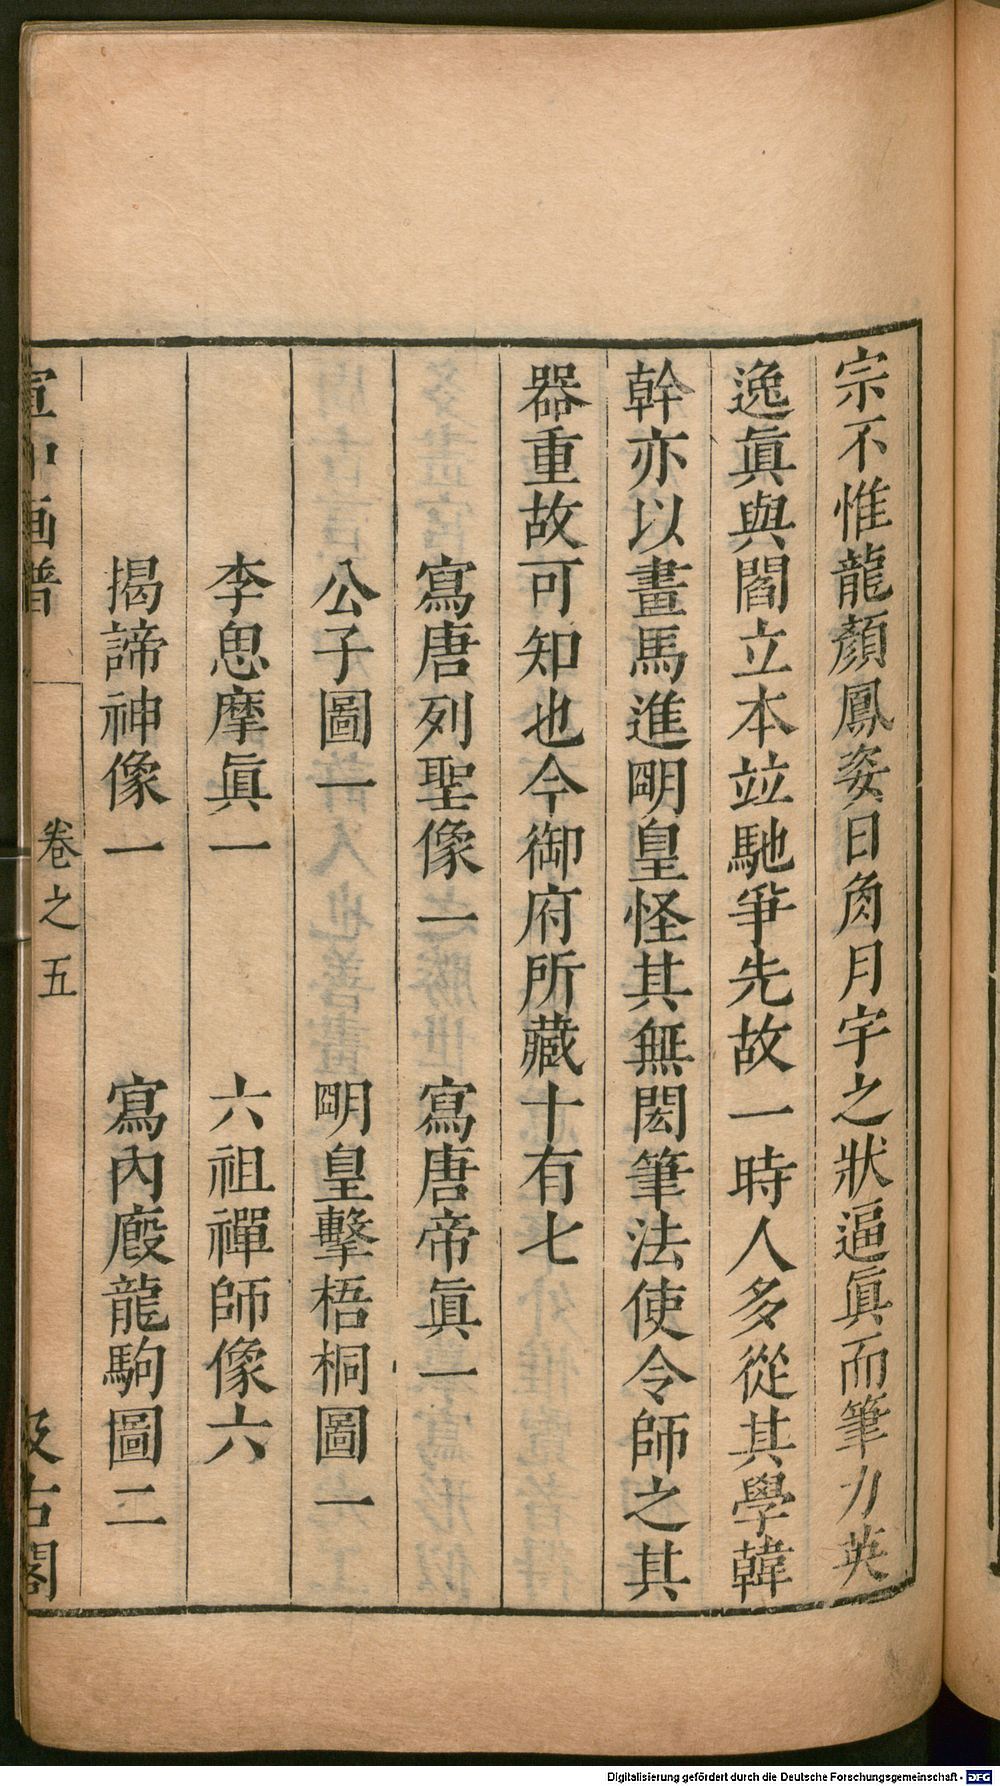 宗不惟龍顏鳳姿日角月宇之狀逼眞而筆力英
逸眞與閻立本竝馳爭先故一時人多從其學韓
幹亦以畫馬進朙皇怪其無閎筆法使令師之其
器重故可知也今御府所藏十有七
寫唐列聖像一　寫唐帝眞一
公子圖一　朙皇擊梧桐圖一
李思摩眞一　六祖禪師像六
揭諦神像一　寫內廄龍駒圖二
宣和画譜　卷之五　汲古閣
Digitalisierung gefördert durch die Deutsche Forschungsgemeinschaft - DFG